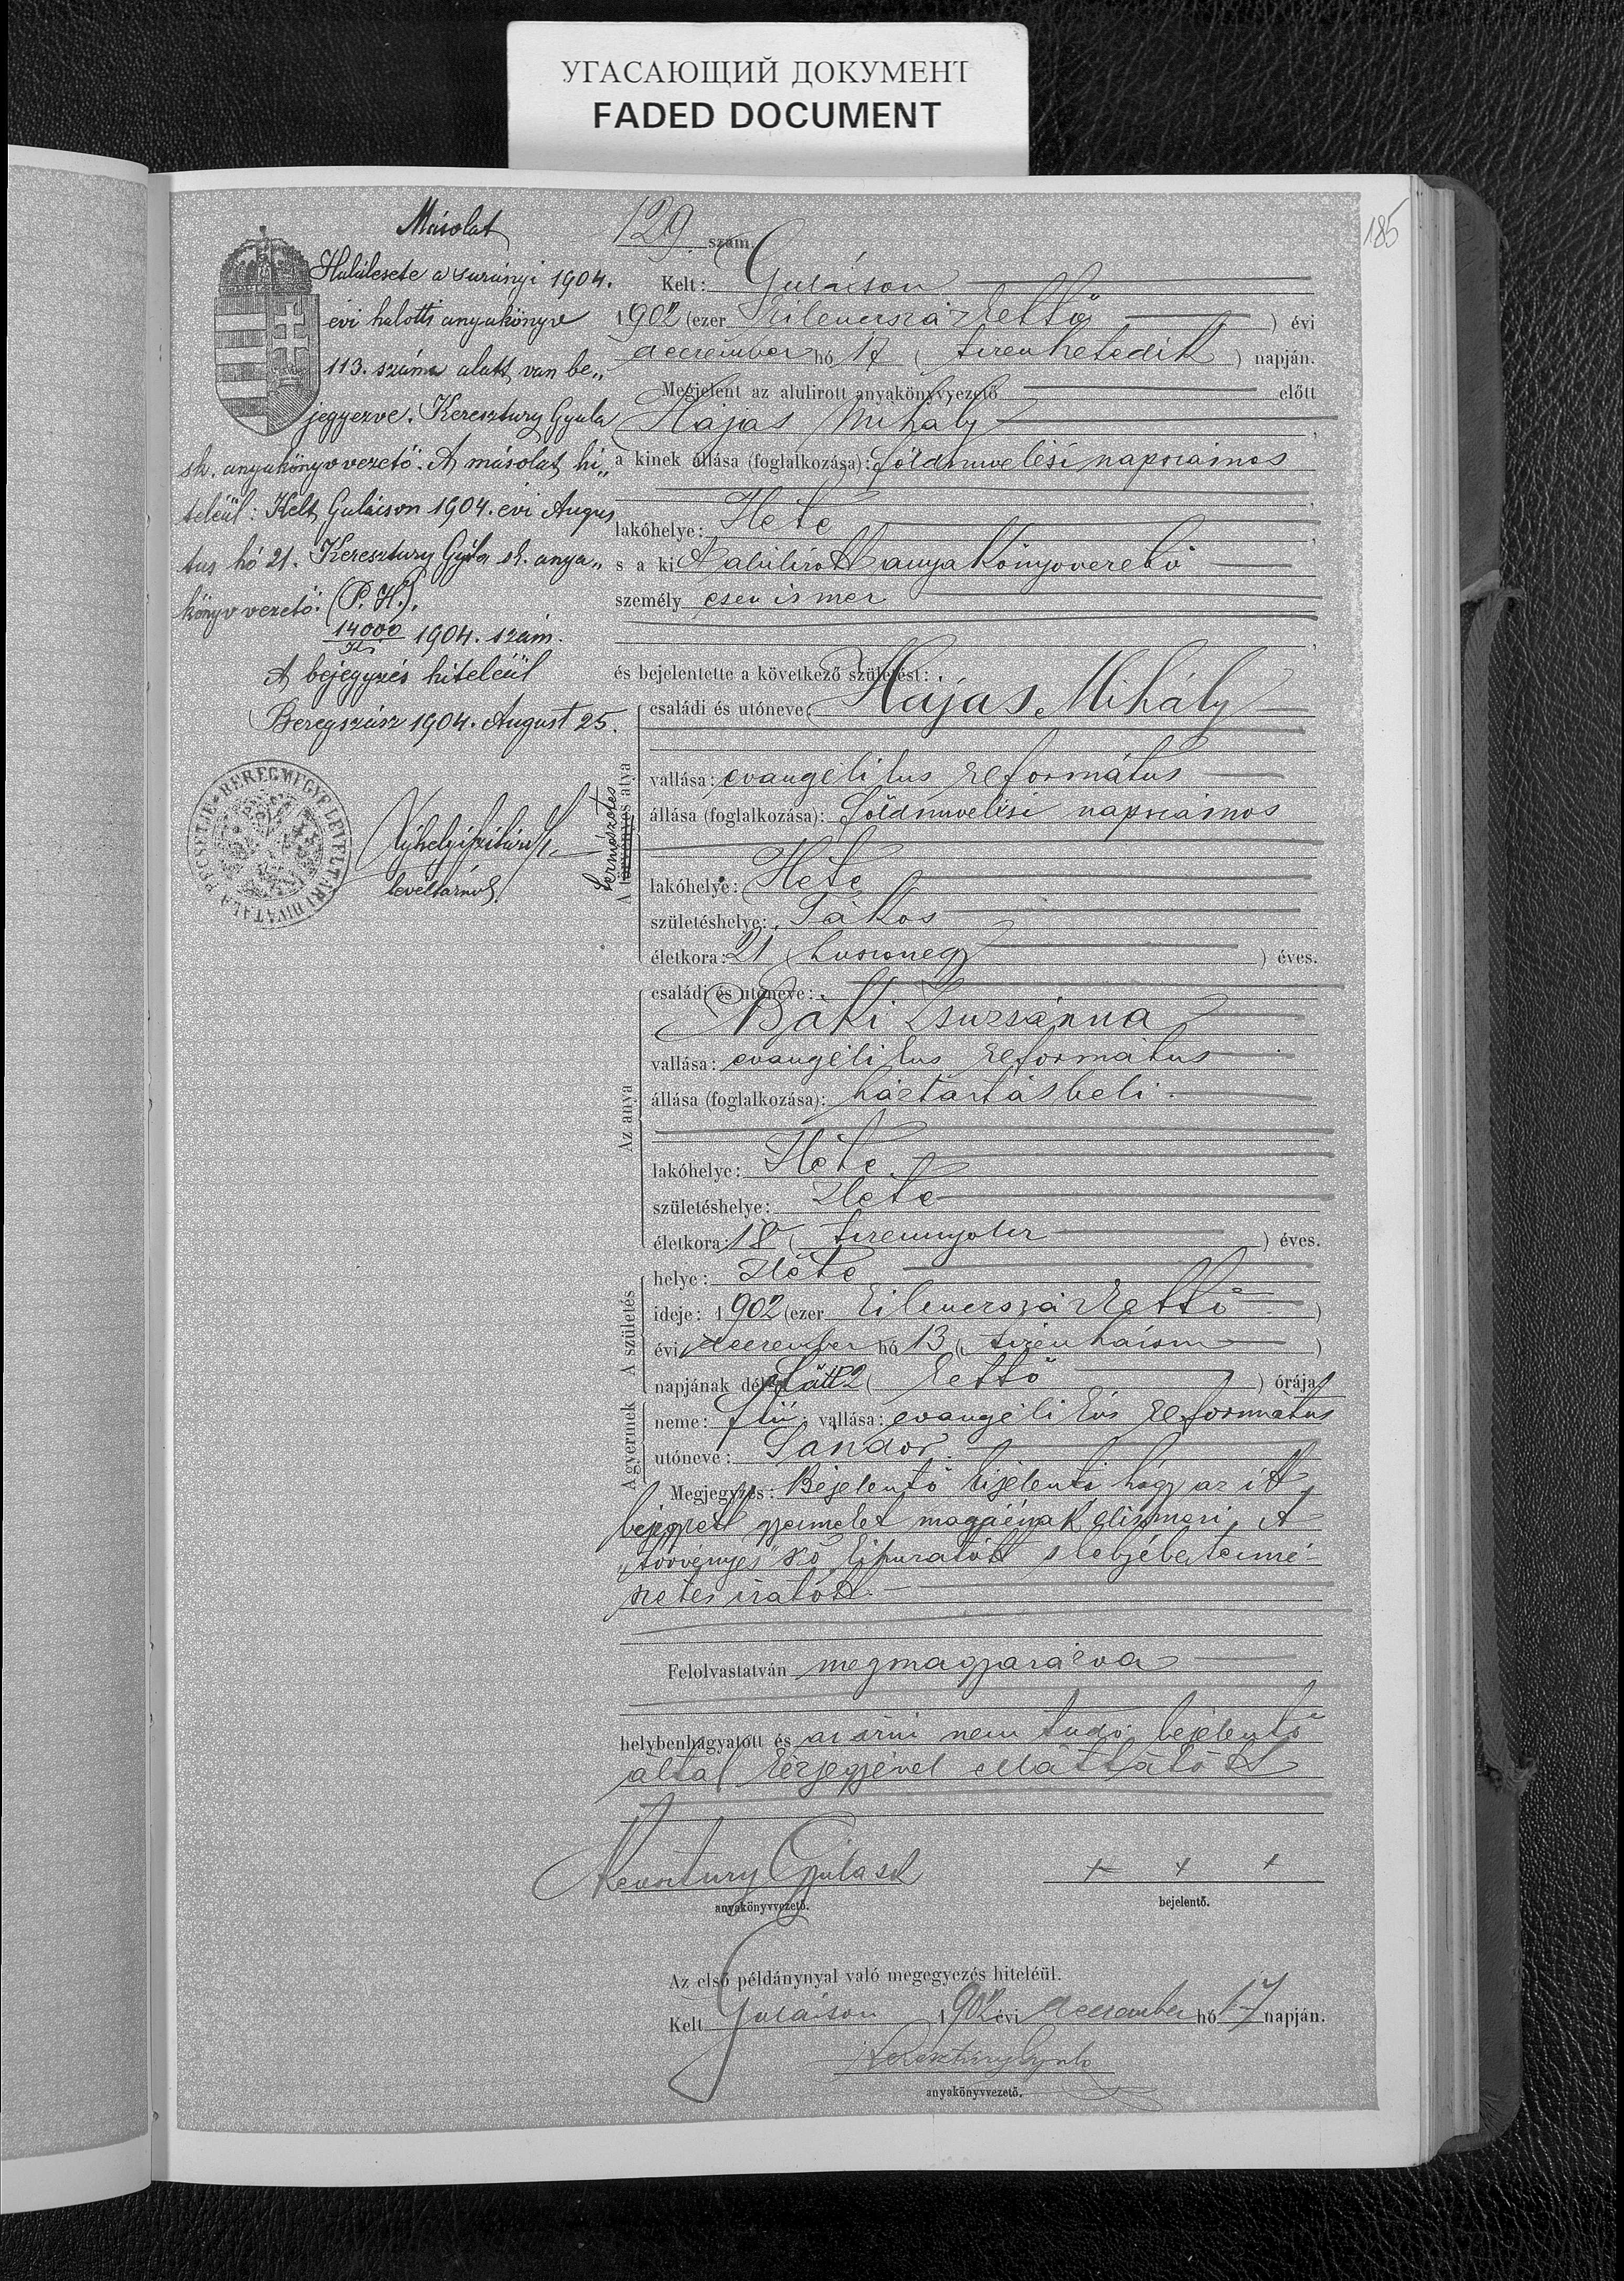 УГАСАЮЩИЙ ДОКУМЕНТ
FADED DOCUMENT
185
Másolat
Halálesete a surányi 1904.
évi halotti anyakönyv
113. száma alatt van be„
jegyezve. Keresztury Gyula
sk. anyakönyvvezető. A másolat hi„
teléül: Kelt Gulácson 1904. évi Augus
tus hó 21. Keresztury Gyula sk. anya„
könyvvezető. (P. H.).
14000 1904. szám.
A bejegyzés hiteléül
Beregszász 1904. August 25.
levéltárnok
BEREGMEGYE LEVÉLTÁRI HIVATALA PECSÉTJE
129 szám.
Kelt: Gulácson
1902 (ezer kilenczszázkettő ) évi
deczember hó 17 ( tizenhetedik ) napján.
Megjelent az alulirott anyakönyvvezető előtt
Hajas Mihály ,
a kinek állása (foglalkozása): földmuvelési napszámos
lakóhelye: Hete ,
s a ki
személy
és bejelentette a következő születést:
A törvényes atya
természetes
családi és utóneve: Hajas Mihály
vallása: evangélikus református
állása (foglalkozása): földmuvelési napszámos
lakóhelye: Hete
születéshelye: Tákos
életkora: 21 ( huszonegy ) éves.
Az anya
családi és utóneve:
Baki Zsuzsánna
vallása: evangélikus református
állása (foglalkozása): háztartásbeli
lakóhelye: Hete
születéshelye: Hete
életkora: 18 ( tizennyolcz ) éves.
A születés
helye: Hete
ideje: 1902 (ezer kilenczszázkettő )
évi deczember hó 13 ( tizenhárom )
napjának délelőtt 2 ( kettő ) órája
A gyermek
neme: fiú; vallása: evangélikus református
utóneve: Sándor.
Megjegyzés: Bejelentő kijelenti hogy az itt
bejegyzett gyermeket magáénak elismeri, A
„törvényes" szó kihuzatott s helyébe termé-
szetes iratott.
Felolvastatván megmagyarázva
helybenhagyatott és az irni nem tudó bejelentő
által kézjegyével elláttatott
Keresztury Gyula sk + + +
anyakönyvvezető. bejelentő.
Az első példánynyal való megegyezés hiteléül.
Kelt Gulácson 1902 évi deczember hó 17 napján.
Keresztury Gyula
anyakönyvvezető.